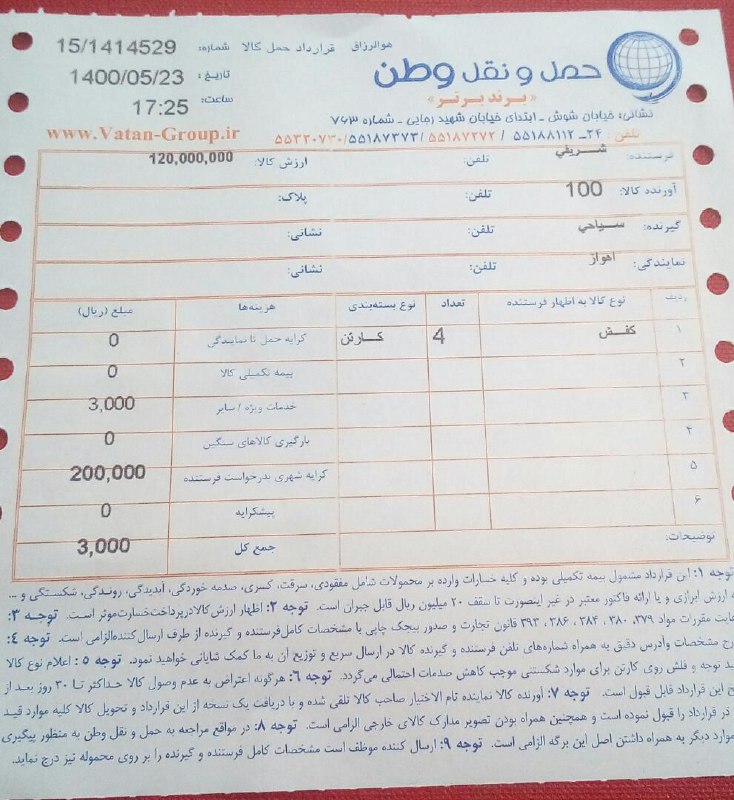 هوالرزاق
قرارداد حمل کالا
شماره: 15/1414529
تاریخ: 1400/05/23
ساعت: 17:25
حمل و نقل وطن
«برند برتر»
نشانی: خیابان شوش - ابتدای خیابان شهید رجایی - شماره ۷۶۳
تلفن: ۲۴- ۵۵۱۸۸۱۱۲ / ۵۵۱۸۷۲۷۲ / ۵۵۱۸۷۳۷۳ / ۵۵۳۳۰۷۳۰
www.Vatan-Group.ir
فرستنده: شریفي تلفن: ارزش کالا: 120,000,000
آورنده کالا: 100 تلفن: پلاک:
گیرنده: سیاحي تلفن: نشانی:
نمایندگی: اهواز تلفن: نشانی:
ردیف نوع کالا به اظهار فرستنده تعداد نوع بسته‌بندی هزینه‌ها مبلغ (ریال)
۱ کفش 4 کارتن کرایه حمل تا نمایندگی 0
۲ بیمه تکمیلی کالا 0
۳ خدمات ویژه / سایر 3,000
۴ بارگیری کالاهای سنگین 0
۵ کرایه شهری بدرخواست فرستنده 200,000
۶ پیشکرایه 0
توضیحات: جمع کل 3,000
توجه ۱: این قرارداد مشمول بیمه تکمیلی بوده و کلیه خسارات وارده بر محمولات شامل مفقودی، سرقت، کسری، صدمه خوردگی، آبدیدگی، روندگی، شکستگی و ...
به ارزش ابرازی و یا ارائه فاکتور معتبر در غیر اینصورت تا سقف ۲۰ میلیون ریال قابل جبران است. توجه ۲: اظهار ارزش کالا در پرداخت خسارت موثر است. توجه ۳:
رعایت مقررات مواد ۳۷۹، ۳۸۰، ۳۸۴، ۳۸۶، ۳۹۳ قانون تجارت و صدور بیجک چاپی با مشخصات کامل فرستنده و گیرنده از طرف ارسال کننده الزامی است. توجه ۴:
درج مشخصات وآدرس دقیق به همراه شماره‌های تلفن فرستنده و گیرنده کالا در ارسال سریع و توزیع آن به ما کمک شایانی خواهید نمود. توجه ۵: اعلام نوع کالا
توجه و فلش روی کارتن برای موارد شکستنی موجب کاهش صدمات احتمالی می‌گردد. توجه ۶: هرگونه اعتراض به عدم وصول کالا حداکثر تا ۳۰ روز بعد از
این قرارداد قابل قبول است. توجه ۷: آورنده کالا نماینده تام الاختیار صاحب کالا تلقی شده و با دریافت یک نسخه از این قرارداد و تحویل کالا کلیه موارد قید
در قرارداد را قبول نموده است و همچنین همراه بودن تصویر مدارک کالای خارجی الزامی است. توجه ۸: در مواقع مراجعه به حمل و نقل وطن به منظور پیگیری
موارد دیگر به همراه داشتن اصل این برگه الزامی است. توجه ۹: ارسال کننده موظف است مشخصات کامل فرستنده و گیرنده را بر روی محموله نیز درج نماید.